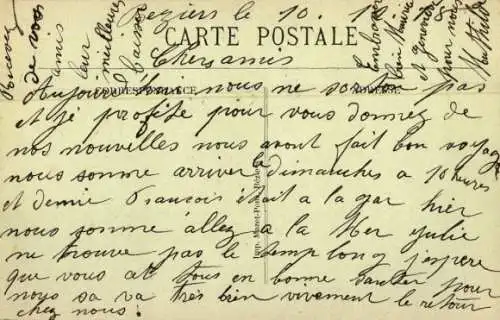 Beziers le 10. 1
CARTE POSTALE
Chers amis
CORRESPONDANCE
Aujourd'hui nous ne sorton pas
et je profite pour vous donnez de
nos nouvelles nous avont fait bon voyage
nous somme arriver dimanches a 10 heures
et demie Francois était a la gar hier
nous somme allez a la Mer Julie
ne trouve pas le temp long j'espere
que vous at tous en bonne santer pour
nous sa va très bien vivement le retour
chez nous.
Recevez
de vos
amis
leur
meilleurs
baiser
Embrasse
bien
et Genevieve
pour nous
Mathilde